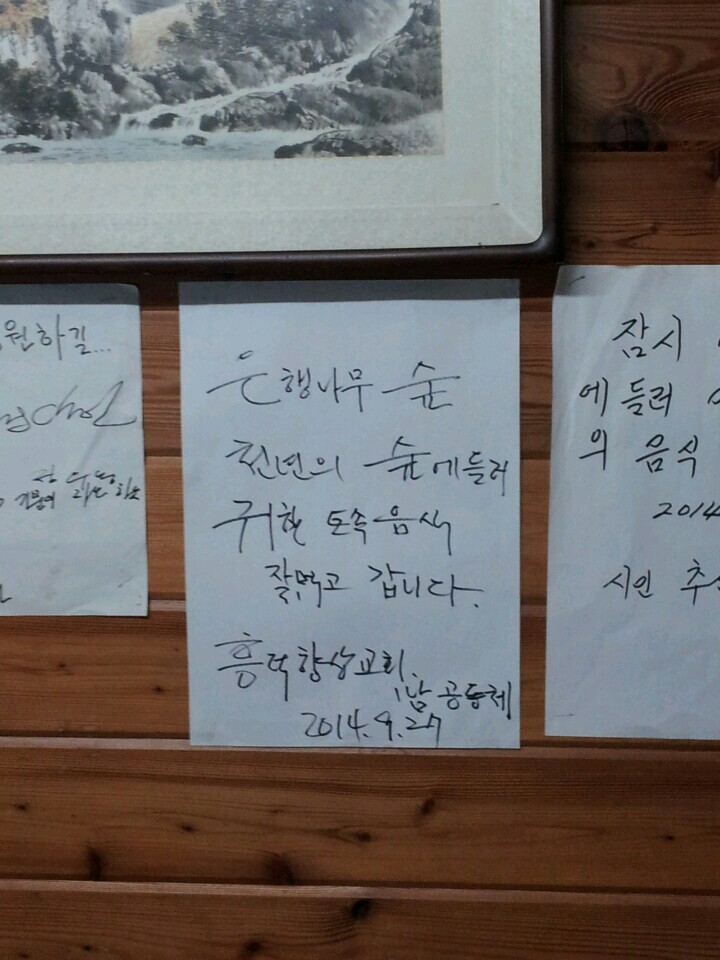 원하길...
은행나무 숲
천년의 숲에 들러
귀한 토속음식
잘먹고 갑니다.
흥덕향상교회.
1남 공동체
2014.9.27
잠시
에 들러
의 음식
2014
시인 추